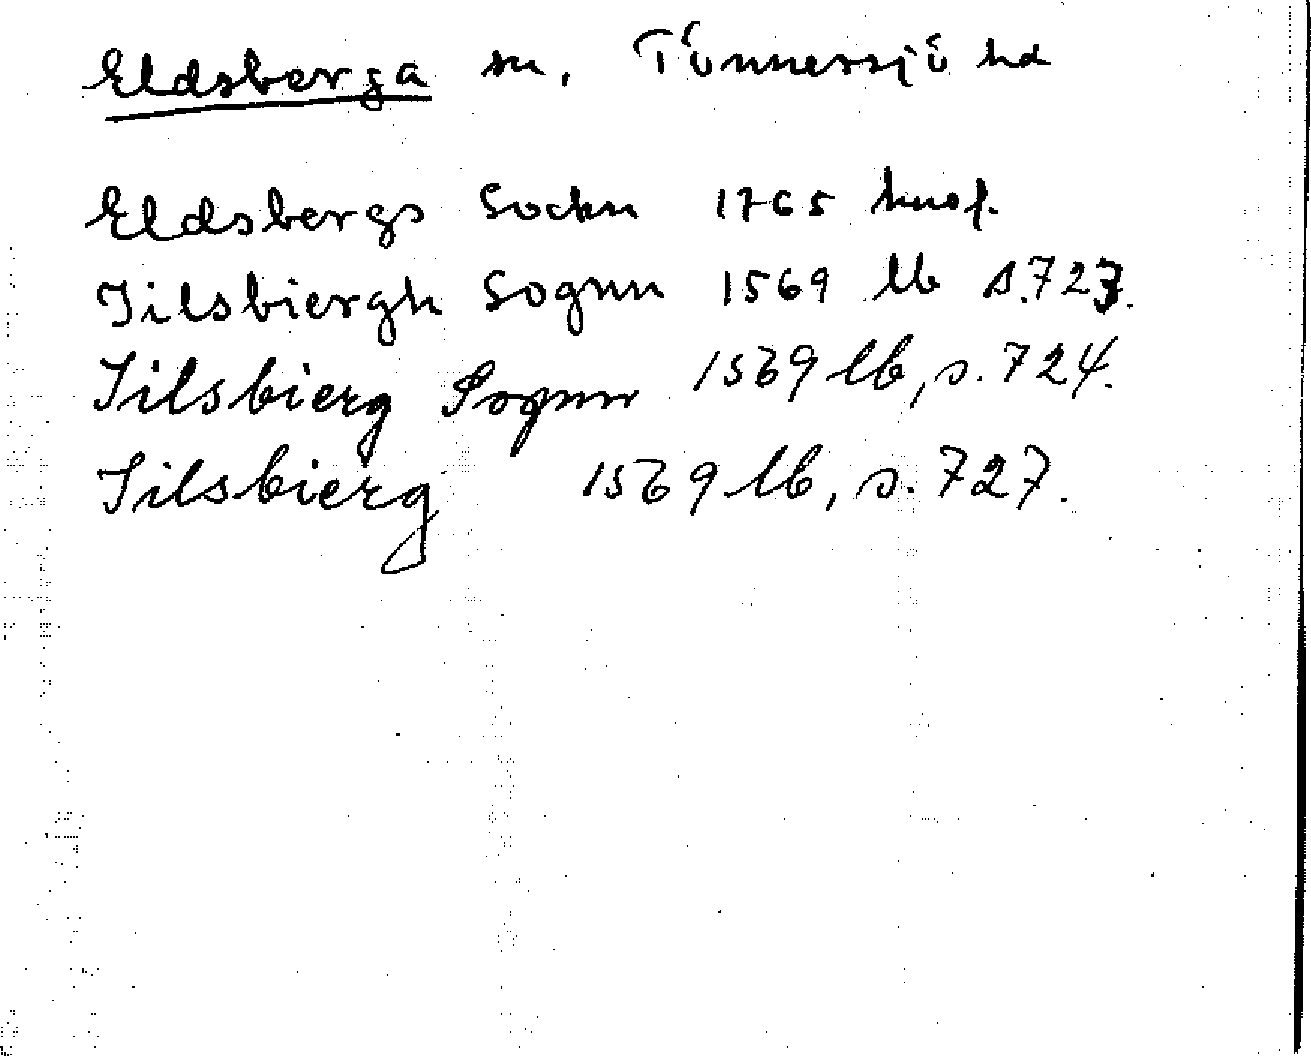 Eldsberga sn, Tönnersjö hd
Eldsbergs Sockn 1765 husf.
Jilsbiergh Sognn 1569 lb s.723.
Jilsbierg Sognn 1569 lb, s. 724.
Jilsbierg 1569 lb, s. 727.